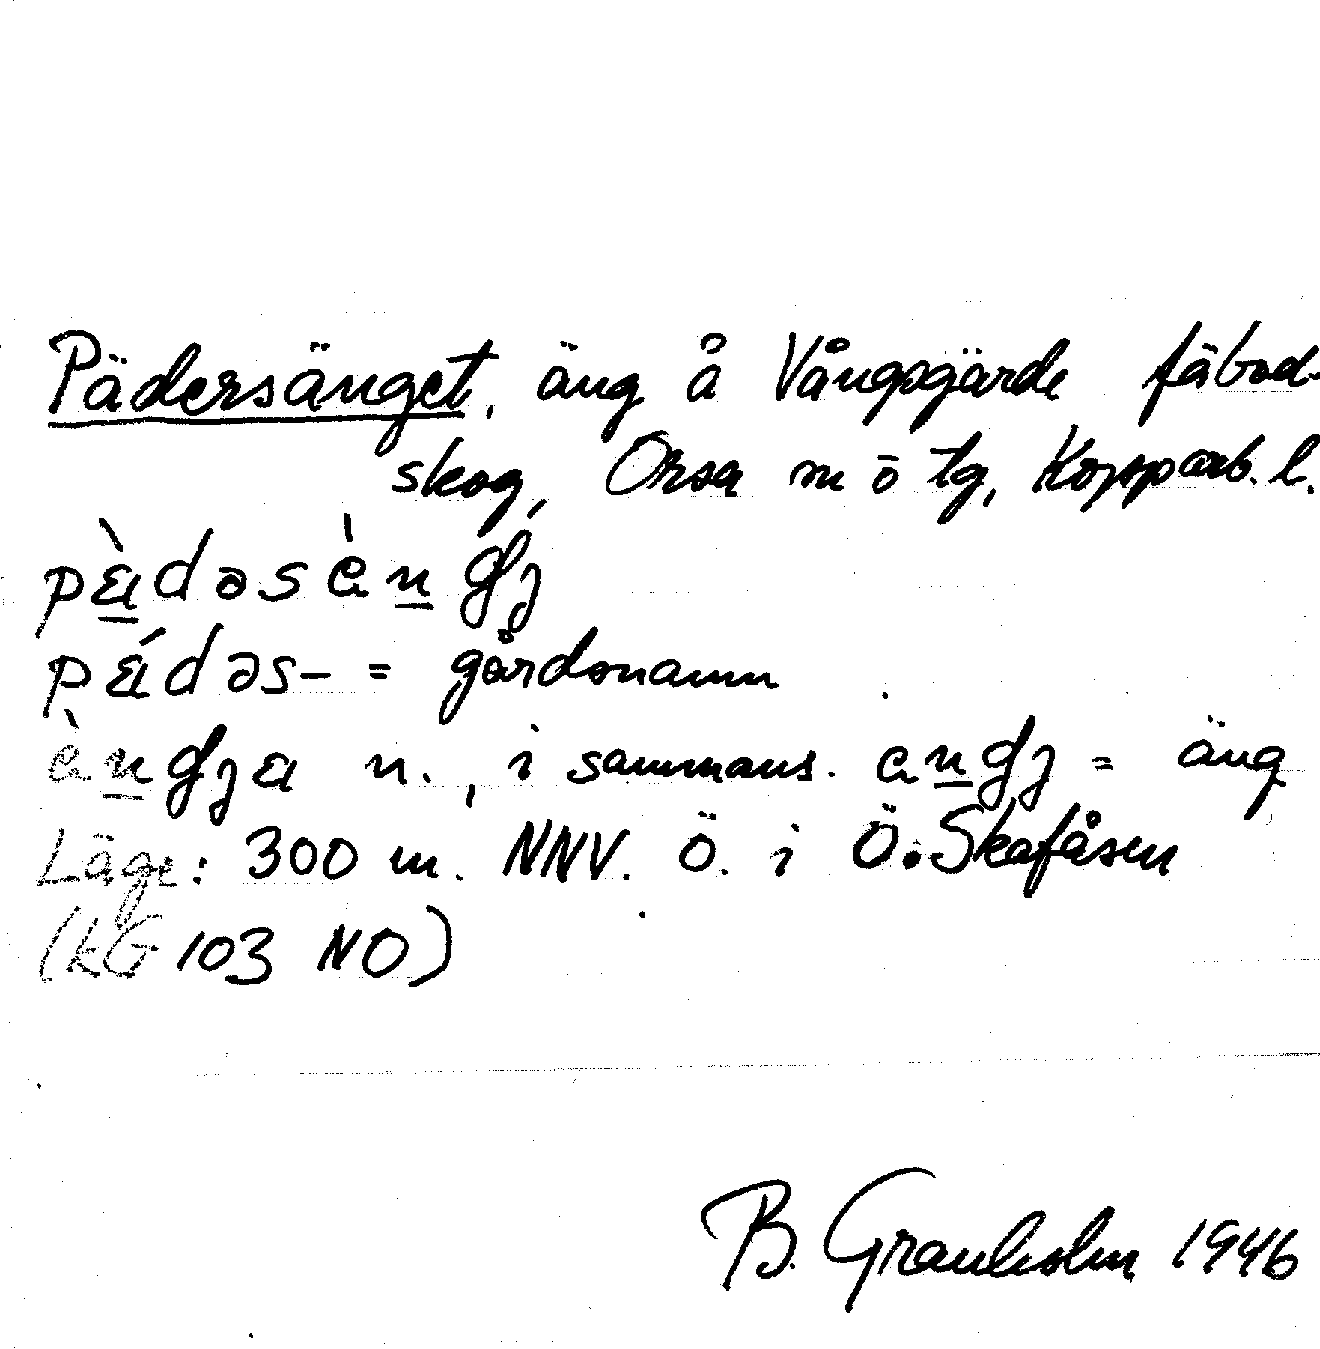 Pädersänget, äng å Vångsgärde fäbod-
skog, Orsa sn o tg, Kopparb. l.
pàdəsèngj
pádəs- = gårdsnamn
èngja n., i sammans. engj = äng
Läge: 300 m. NNV. Ö. i Ö. Skafåsen
(kG 103 NO)
B. Granholm 1946